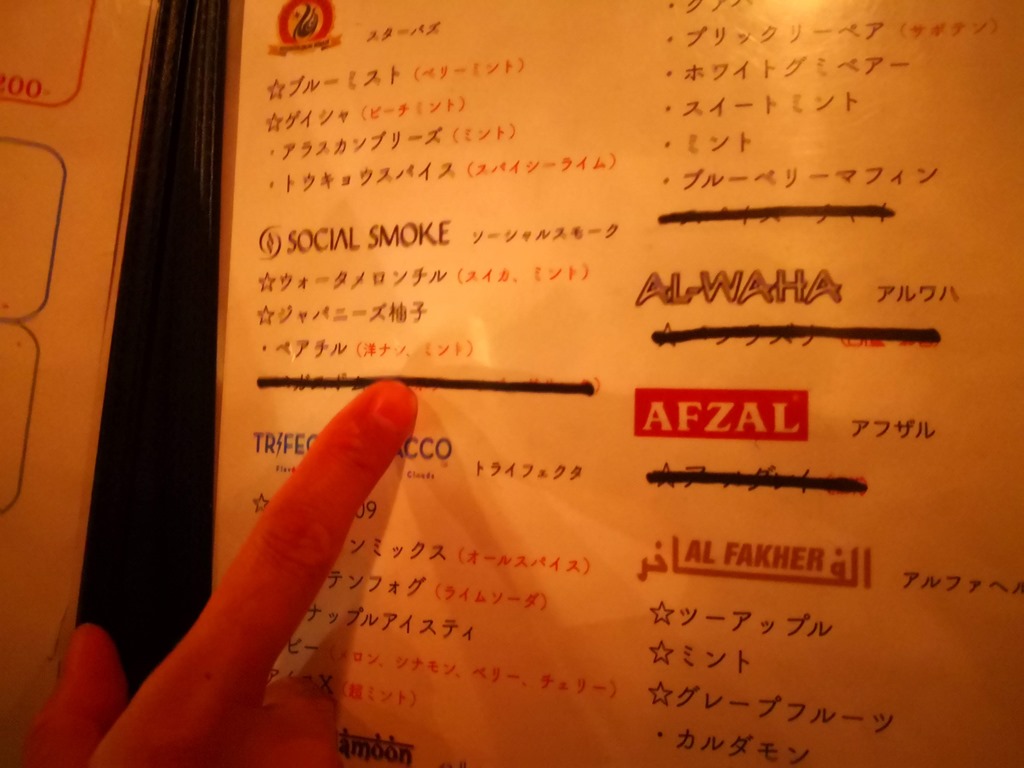 200
スターバズ
☆ブルーミスト（ベリーミント）
☆ゲイシャ（ピーチミント）
・アラスカンブリーズ（ミント）
・トウキョウスパイス（スパイシーライム）
SOCIAL SMOKE ソーシャルスモーク
☆ウォータメロンチル（スイカ、ミント）
☆ジャパニーズ柚子
・ペアチル（洋ナシ、ミント）
トライフェクタ
Clouds
09
ンミックス（オールスパイス）
テンフォグ（ライムソーダ）
ナップルアイスティ
ビー（メロン、シナモン、ベリー、チェリー）
X（超ミント）
amoon
・グアバ
・プリックリーペア（サボテン）
・ホワイトグミベアー
・スイートミント
・ミント
・ブルーベリーマフィン
AL-WAHA アルワハ
AFZAL アフザル
الفاخر AL FAKHER アルファヘル
☆ツーアップル
☆ミント
☆グレープフルーツ
・カルダモン